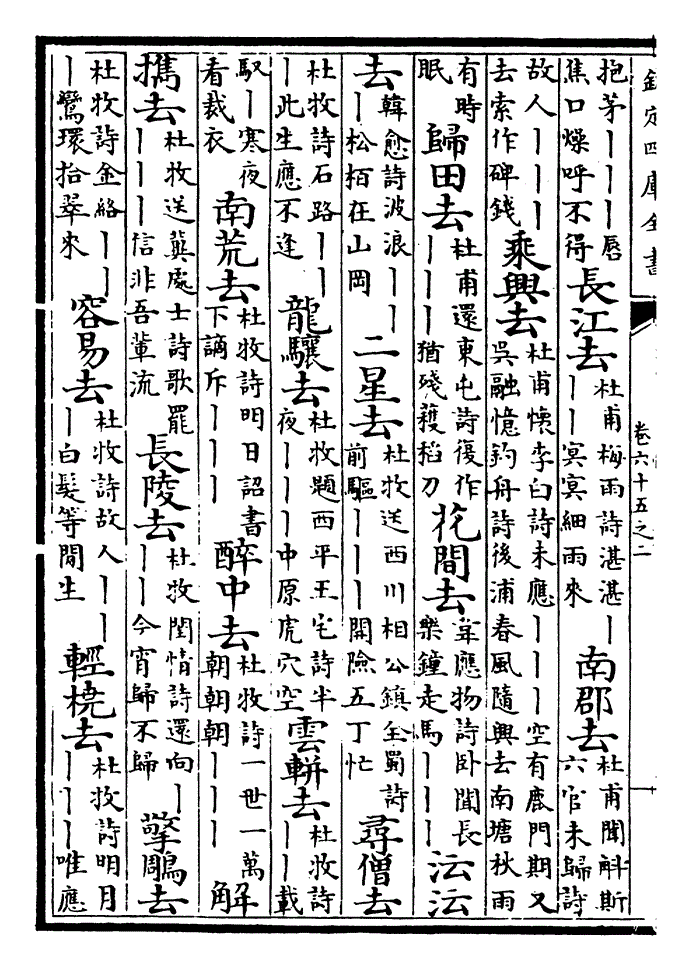 欽定四庫全書
卷六十五之二
抱茅｜｜｜｜唇焦口燥呼不得 長江去 杜甫梅雨詩湛湛｜｜｜冥冥細雨來 南郡去 杜甫聞斛斯六官未歸詩
故人｜｜｜去索作碑錢 乘興去 杜甫懷李白詩未應｜｜｜空有鹿門期又吳融憶釣舟詩後浦春風隨興去南塘秋雨
有時眠 歸田去 杜甫還東屯詩復作｜｜｜猶殘穫稻刀 花間去 韋應物詩卧聞長樂鐘走馬｜｜｜ 沄沄
去 韓愈詩波浪｜｜｜松栢在山岡 二星去 杜牧送西川相公鎮全蜀詩前驅｜｜｜開險五丁忙 尋僧去
杜牧詩石路｜｜｜此生應不逢 龍驤去 杜牧題西平王宅詩半夜｜｜｜中原虎穴空 雲軿去 杜牧詩｜｜載
馭｜寒夜看裁衣 南荒去 杜牧詩明日詔書下謫斥｜｜｜ 醉中去 杜牧詩一世一萬朝朝朝｜｜｜ 解
攜去 杜牧送冀處士詩歌罷｜｜｜信非吾輩流 長陵去 杜牧閨情詩還向｜｜｜今宵歸不歸 擎鵰去
杜牧詩金絡｜｜｜鶯環拾翠來 容易去 杜牧詩故人｜｜｜白髮等閒生 輕橈去 杜牧詩明月｜｜｜唯應